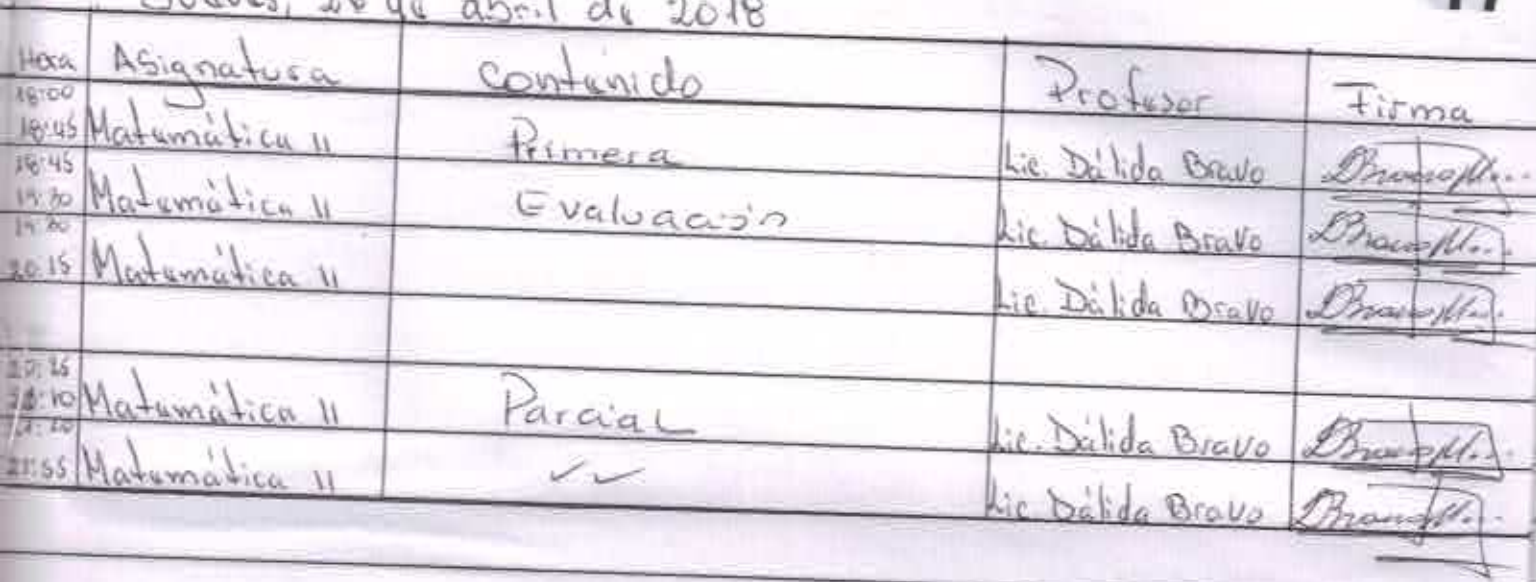 de abril de 2018
Hora Asignatura Contenido Profesor Firma
18:00
18:45 Matemática II Primera Lic. Dálida Bravo
18:45
19:30 Matemática II Evaluación Lic. Dálida Bravo
19:30
20:15 Matemática II Lic. Dálida Bravo
20:25
21:10 Matemática II Parcial Lic. Dálida Bravo
21:55 Matemática II ✓✓ Lic. Dálida Bravo